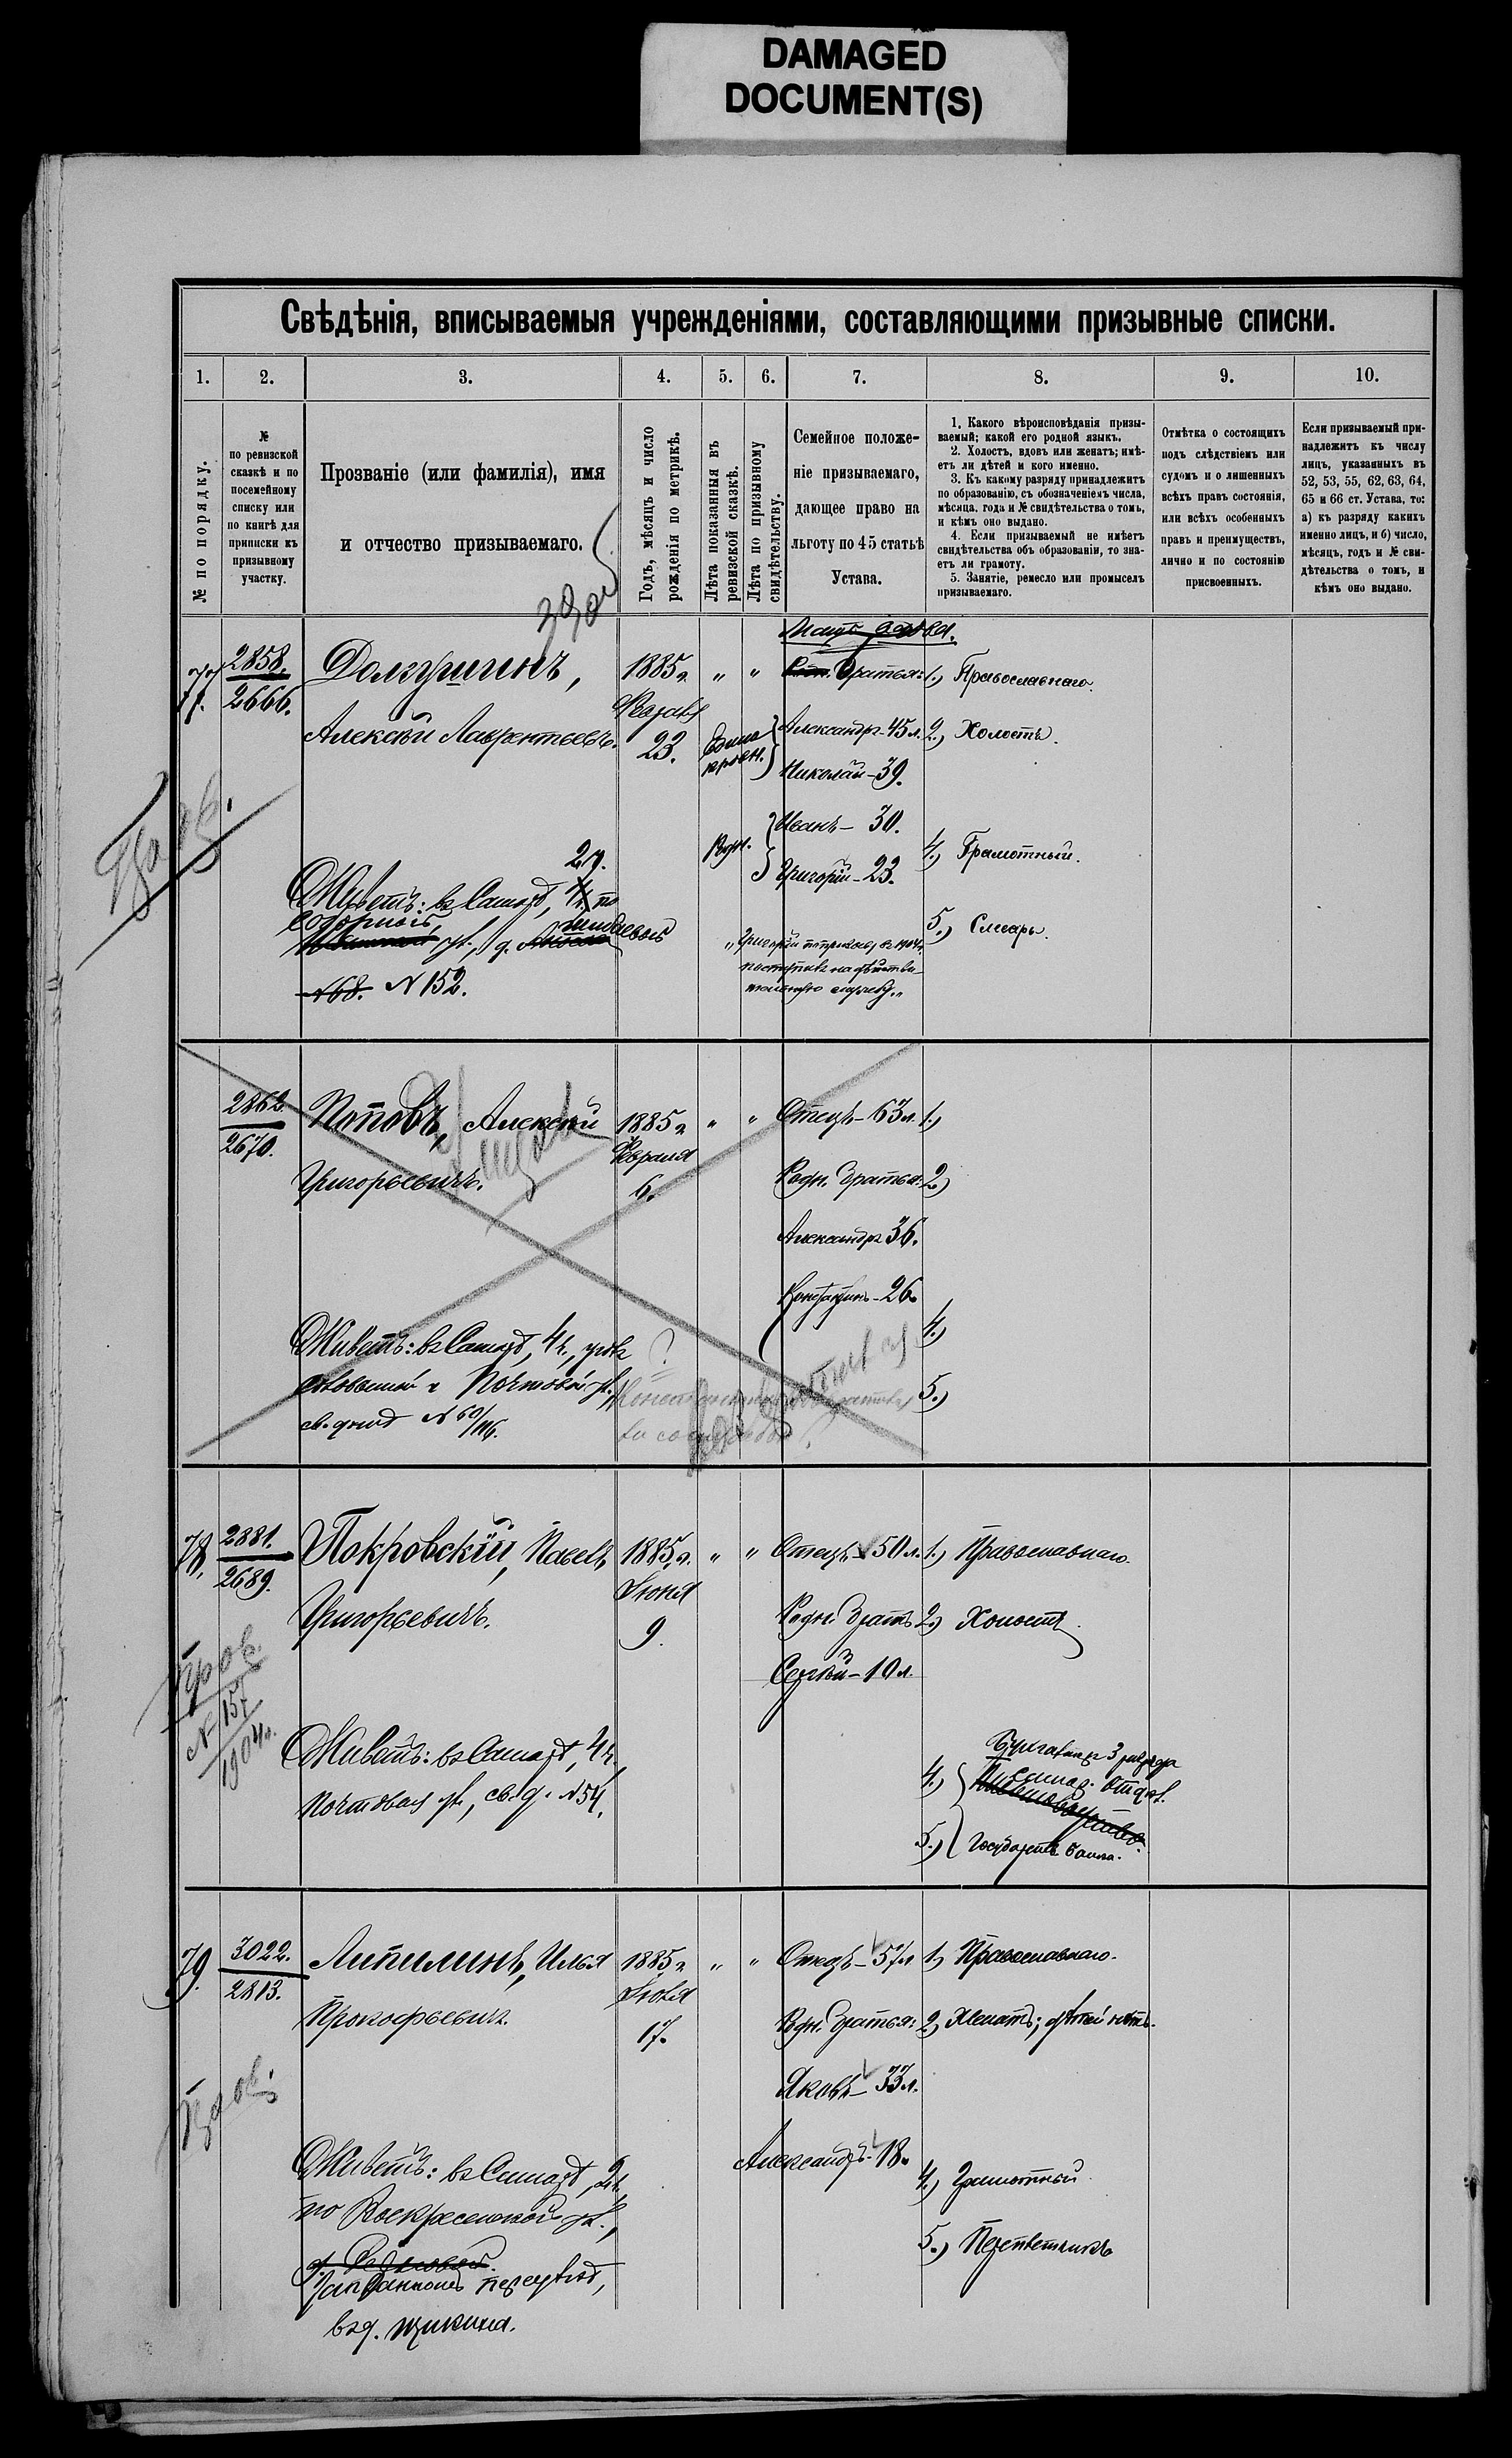 DAMAGED
DOCUMENT(S)
Свѣдѣнія, вписываемыя учрежденіями, составляющими призывные списки.
1. 2. 3. 4. 5. 6. 7. 8. 9. 10.
№ по порядку.
№
по ревизской
сказкѣ и по
посемейному
списку или
по книгѣ для
приписки къ
призывному
участку.
Прозваніе (или фамилія), имя
и отчество призываемаго.
Годъ, мѣсяцъ и число
рожденія по метрикѣ.
Лѣта показанныя въ
ревизской сказкѣ.
Лѣта по призывному
свидѣтельству.
Семейное положе-
ніе призываемаго,
дающее право на
льготу по 45 статьѣ
Устава.
1. Какого вѣроисповѣданія призы-
ваемый; какой его родной языкъ.
2. Холостъ, вдовъ или женатъ; имѣ-
етъ ли дѣтей и кого именно.
3. Къ какому разряду принадлежитъ
по образованію, съ обозначеніемъ числа,
мѣсяца, года и № свидѣтельства о томъ,
и кѣмъ оно выдано.
4. Если призываемый не имѣетъ
свидѣтельства объ образованіи, то зна-
етъ ли грамоту.
5. Занятіе, ремесло или промыселъ
призываемаго.
Отмѣтка о состоящихъ
подъ слѣдствіемъ или
судомъ и о лишенныхъ
всѣхъ правъ состоянія,
или всѣхъ особенныхъ
правъ и преимуществъ,
лично и по состоянію
присвоенныхъ.
Если призываемый при-
надлежитъ къ числу
лицъ, указанныхъ въ
52, 53, 55, 62, 63, 64,
65 и 66 ст. Устава, то:
а) къ разряду какихъ
именно лицъ, и б) число,
мѣсяцъ, годъ и № сви-
дѣтельства о томъ, и
кѣмъ оно выдано.
77.
2858.
2666.
Долгушинъ,
Алексѣй Лаврентьевъ.
Живетъ: въ Самарѣ, 2 ч. по
Соборной ул., д.
№ 68. № 152.
1885 г.
23.
" "
Мать вдова.
братья:
Александръ - 45 л.
Николай - 39.
Иванъ - 30.
Григорій - 23.
Едино
кровн.
Родн.
1.) Православнаго.
2.) Холостъ.
4.) Грамотный.
5.) Слесарь.
2862
2670.
Поповъ, Алексѣй
Григорьевичъ.
Живетъ: въ Самарѣ, 4 ч.,
и Почтовой ул.,
№ 60/116.
1885 г.
Февраля
6.
" "
Отецъ - 63 л.
Родн. братья:
Александръ 36.
26.
1.)
2.)
4.)
5.)
78.
2881.
2689.
Покровскій, Павелъ
Григорьевичъ.
Живетъ: въ Самарѣ, 4 ч.,
Почтовая ул., св. д. № 54.
№ 157
1904 г.
1885 г.
Іюня
9.
" "
Отецъ - 50 л.
Родн. братъ
Сергѣй - 10 л.
1.) Православнаго.
2.) Холостъ.
4.) 3 разряда
5.)
79.
3022.
2813.
Липилинъ, Илья
Прокофьевичъ.
Живетъ: въ Самарѣ, 2 ч.,
по Воскресенской ул.,
въ д. Щикина.
1885 г.
17.
" "
Отецъ - 57 л.
Родн. братья:
Яковъ - 33 л.
Александръ - 18.
1.) Православнаго.
2.) Женатъ; дѣтей нѣтъ.
4.) Грамотный
5.) Переплетчикъ